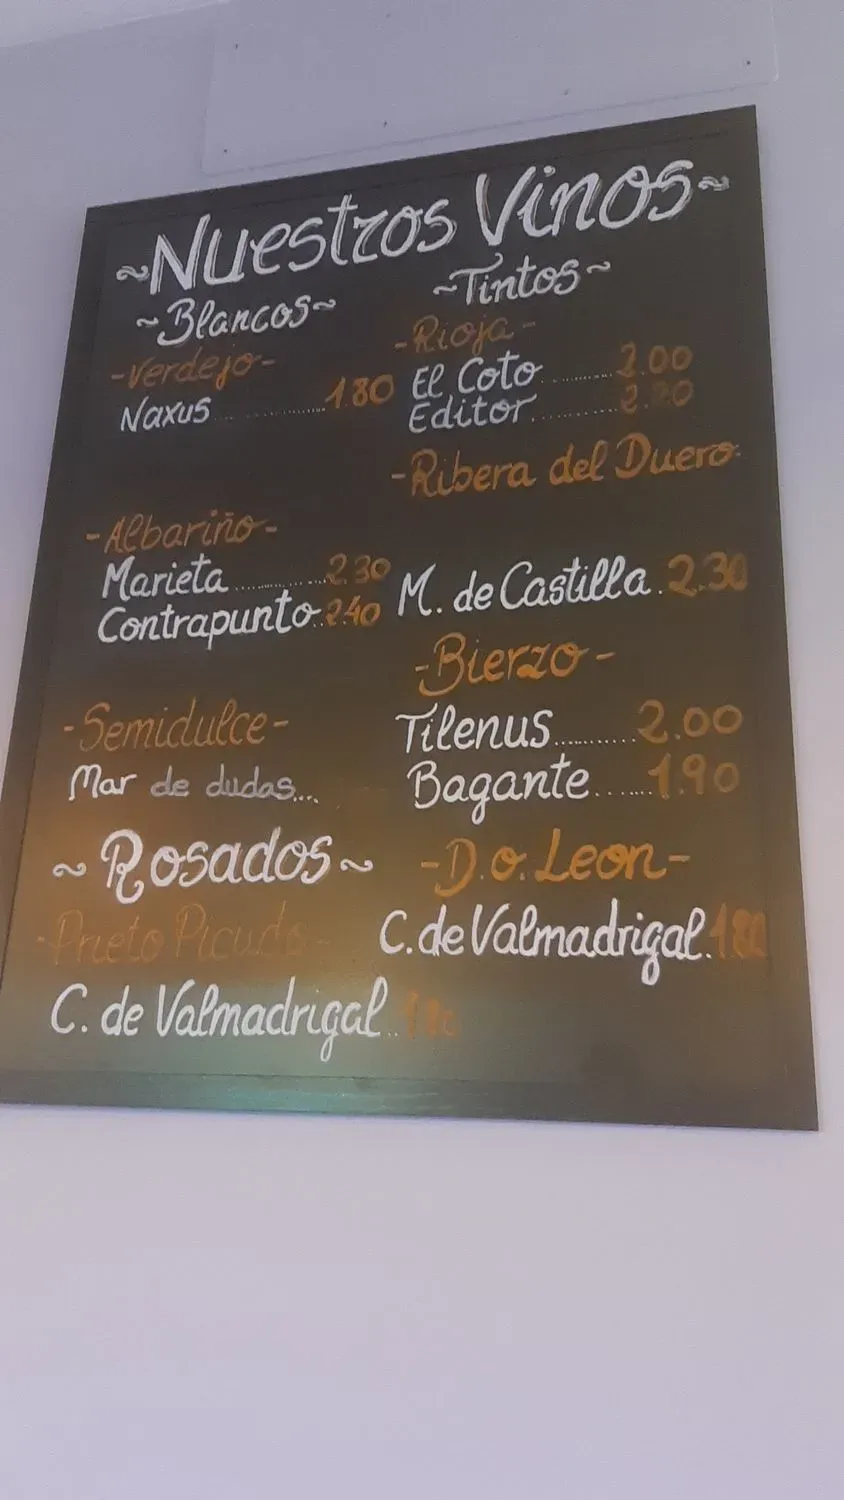 ~Nuestros Vinos~
~Blancos~
-Verdejo-
Naxus..................1.80
-Albariño-
Marieta............2.30
Contrapunto..2.40
-Semidulce-
Mar de dudas...
~Rosados~
-Prieto Picudo-
C. de Valmadrigal..
~Tintos~
-Rioja-
El Coto...........2.00
Editor..........
-Ribera del Duero-
M. de Castilla.2.30
-Bierzo-
Tilenus...........2.00
Bagante.......1.90
-D.o. Leon-
C. de Valmadrigal.1.80